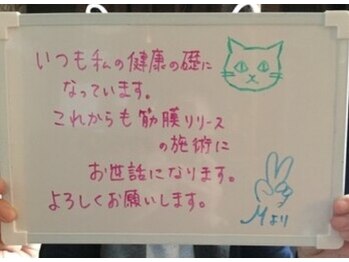 いつも私の健康の礎に
なっています。
これからも筋膜リリース
の施術に
お世話になります。
よろしくお願いします。
Mより